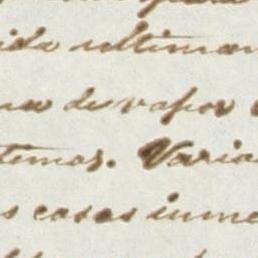 ida ultimam
na de vapor
temos. Varia
s casas imme